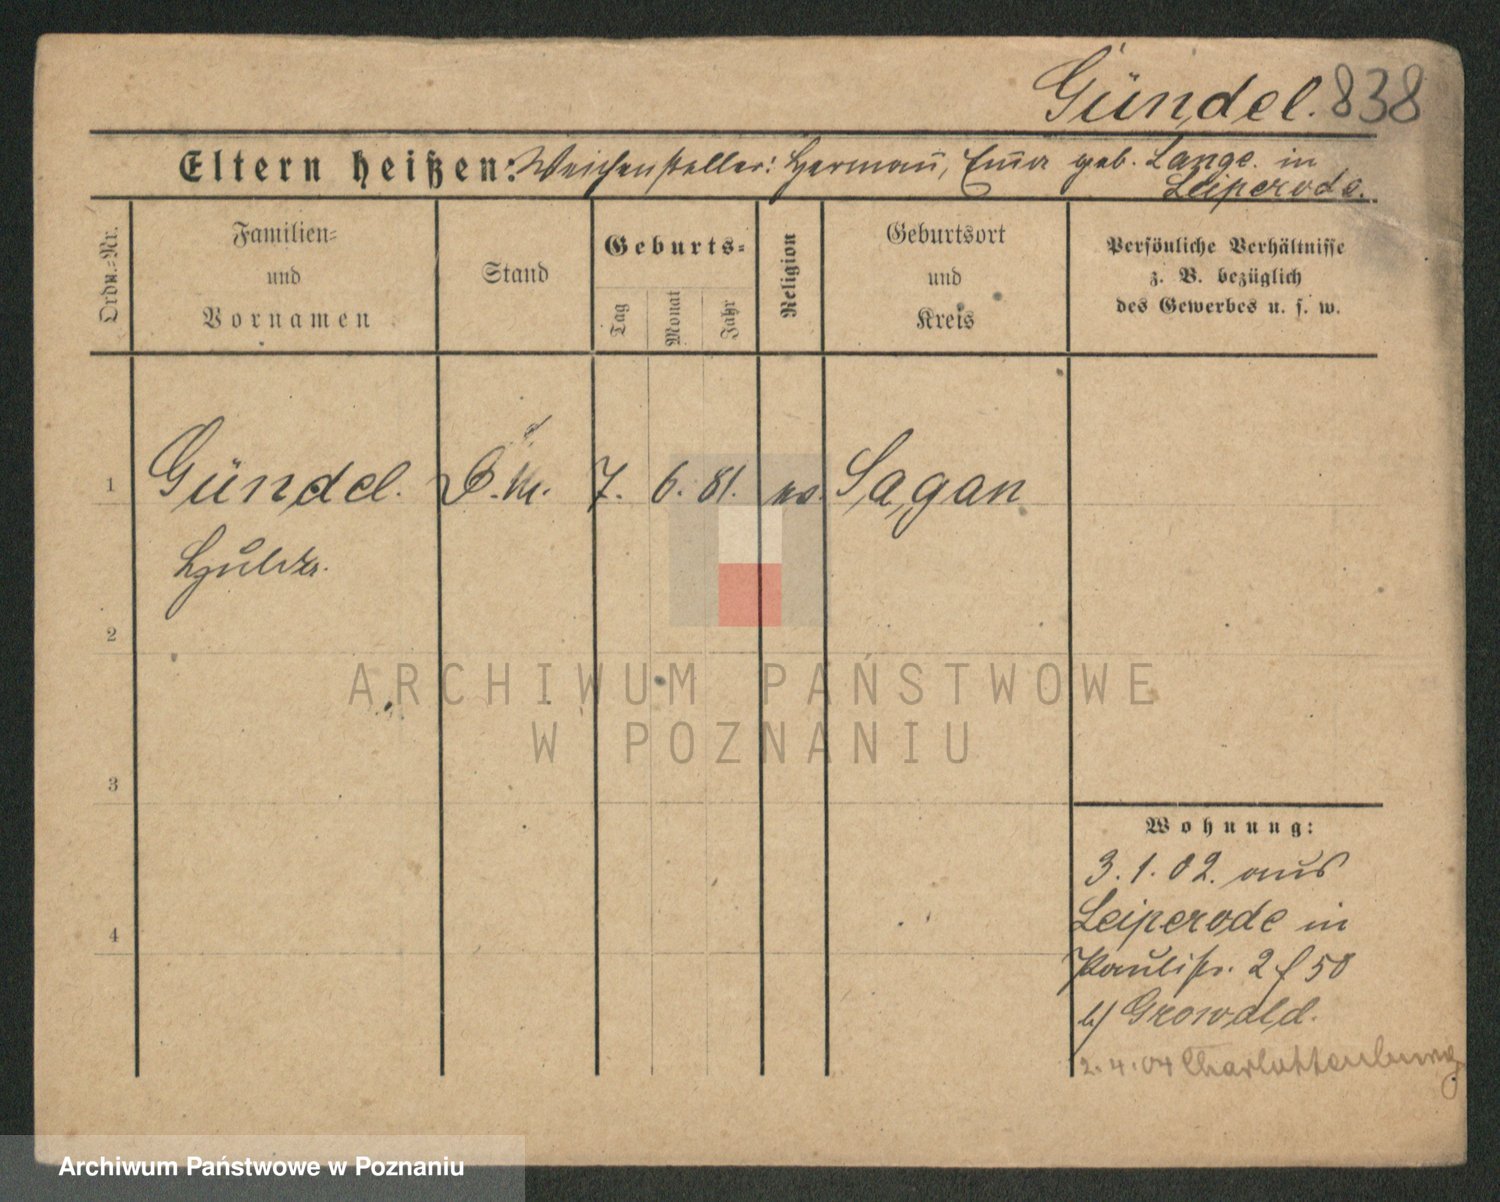 Gündel. 838
Eltern heißen: Weichensteller: Herman̄, Em̄a geb. Lange. in
Leiperode.
Ordn.-Nr.
Familien-
und
Vornamen
Stand
Geburts-
Tag
Monat
Jahr
Religion
Geburtsort
und
Kreis
Persönliche Verhältnisse
z. B. bezüglich
des Gewerbes u. s. w.
1 Gündel. 7. 6. 81. ev. Sagan
2
3
4
Wohnung:
3. 1. 02. aus
Leiperode in
Paulistr. 2 f 50
b/ Growald.
2. 4. 04 Charlottenburg
ARCHIWUM PAŃSTWOWE
W POZNANIU
Archiwum Państwowe w Poznaniu